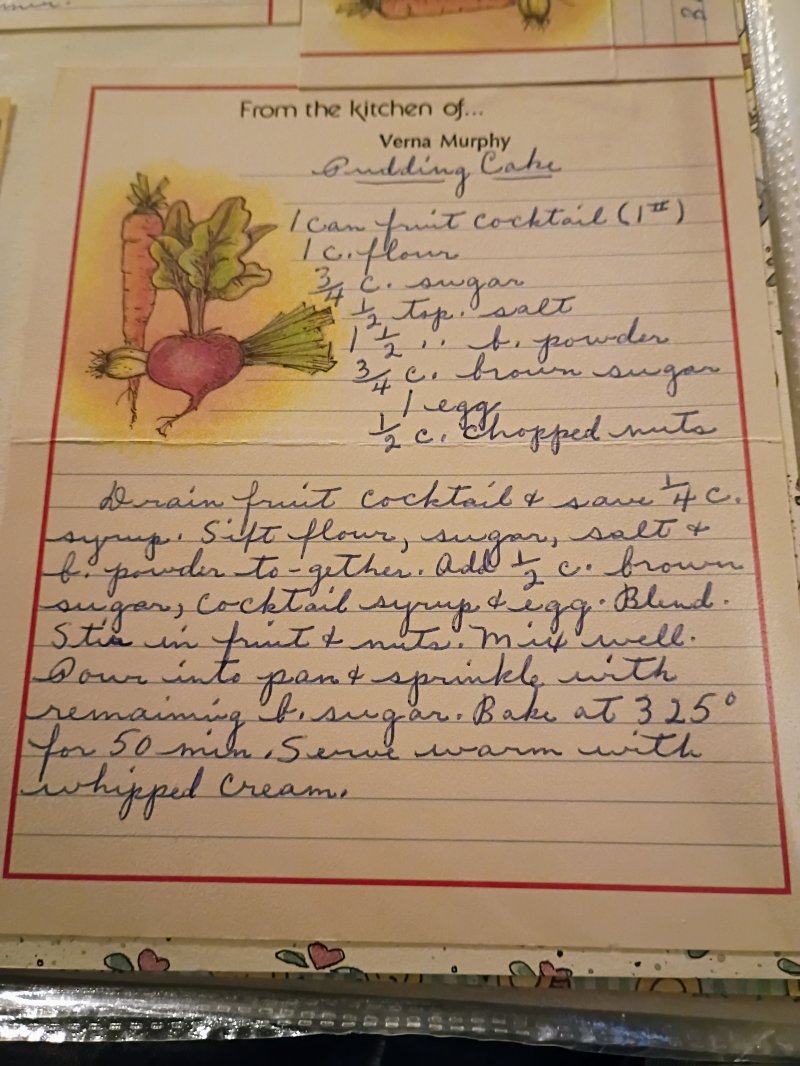 From the kitchen of...
Verna Murphy
Pudding Cake
1 can fruit cocktail (1#)
1 c. flour
3/4 c. sugar
1/2 tsp. salt
1 1/2 " b. powder
3/4 c. brown sugar
1 egg
1/2 c. chopped nuts
Drain fruit cocktail & save 1/4 c.
syrup. Sift flour, sugar, salt &
b. powder to-gether. Add 1/2 c. brown
sugar, cocktail syrup & egg. Blend.
Stir in fruit & nuts. Mix well.
Pour into pan & sprinkle with
remaining b. sugar. Bake at 325°
for 50 min. Serve warm with
whipped cream.